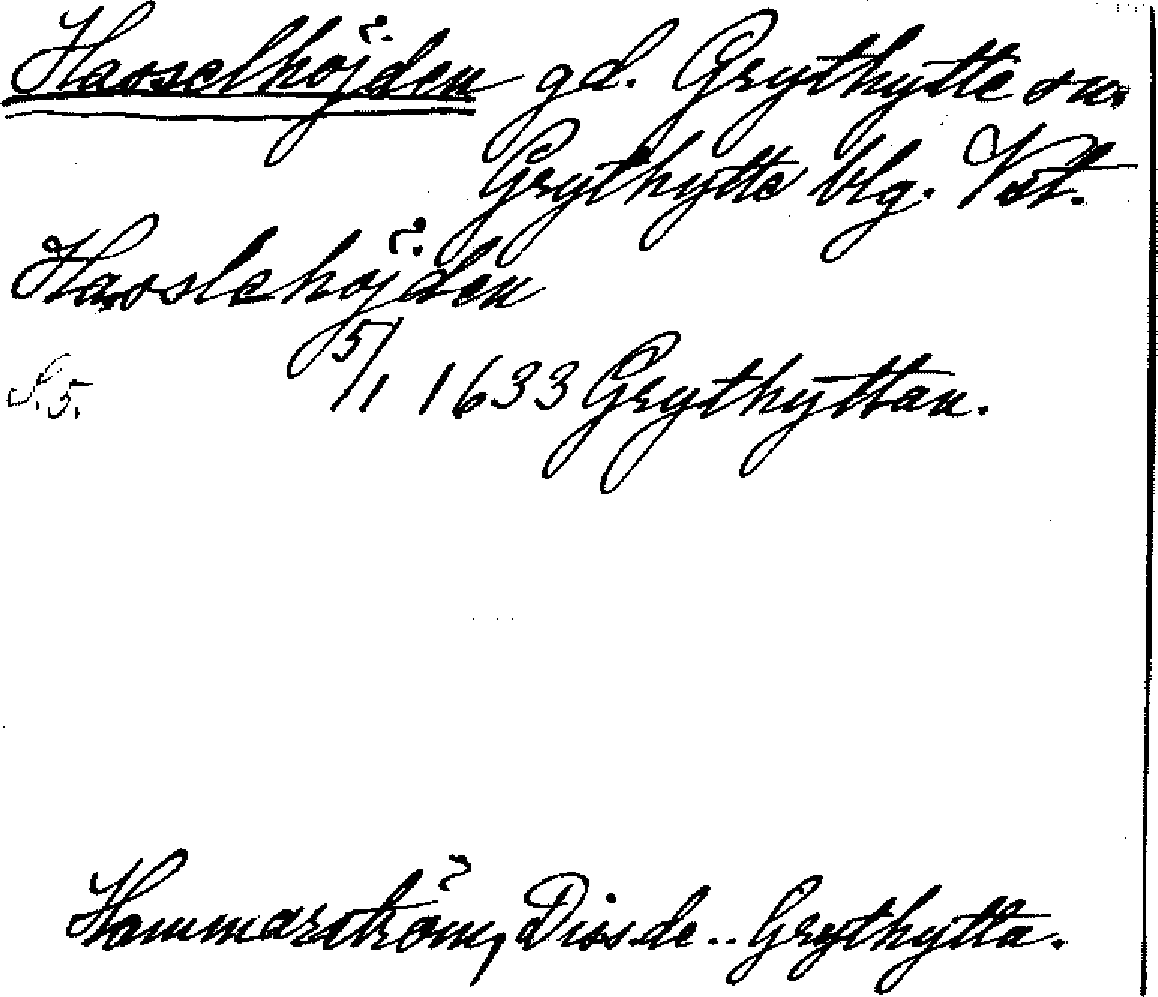 Hasselhöjden gd. Grythytte sn.
Grythytte blg. Vstl.
Hasslehöjden
S. 5. 5/1 1633 Grythyttan.
Hammarström, Diss. de .. Grythytta.